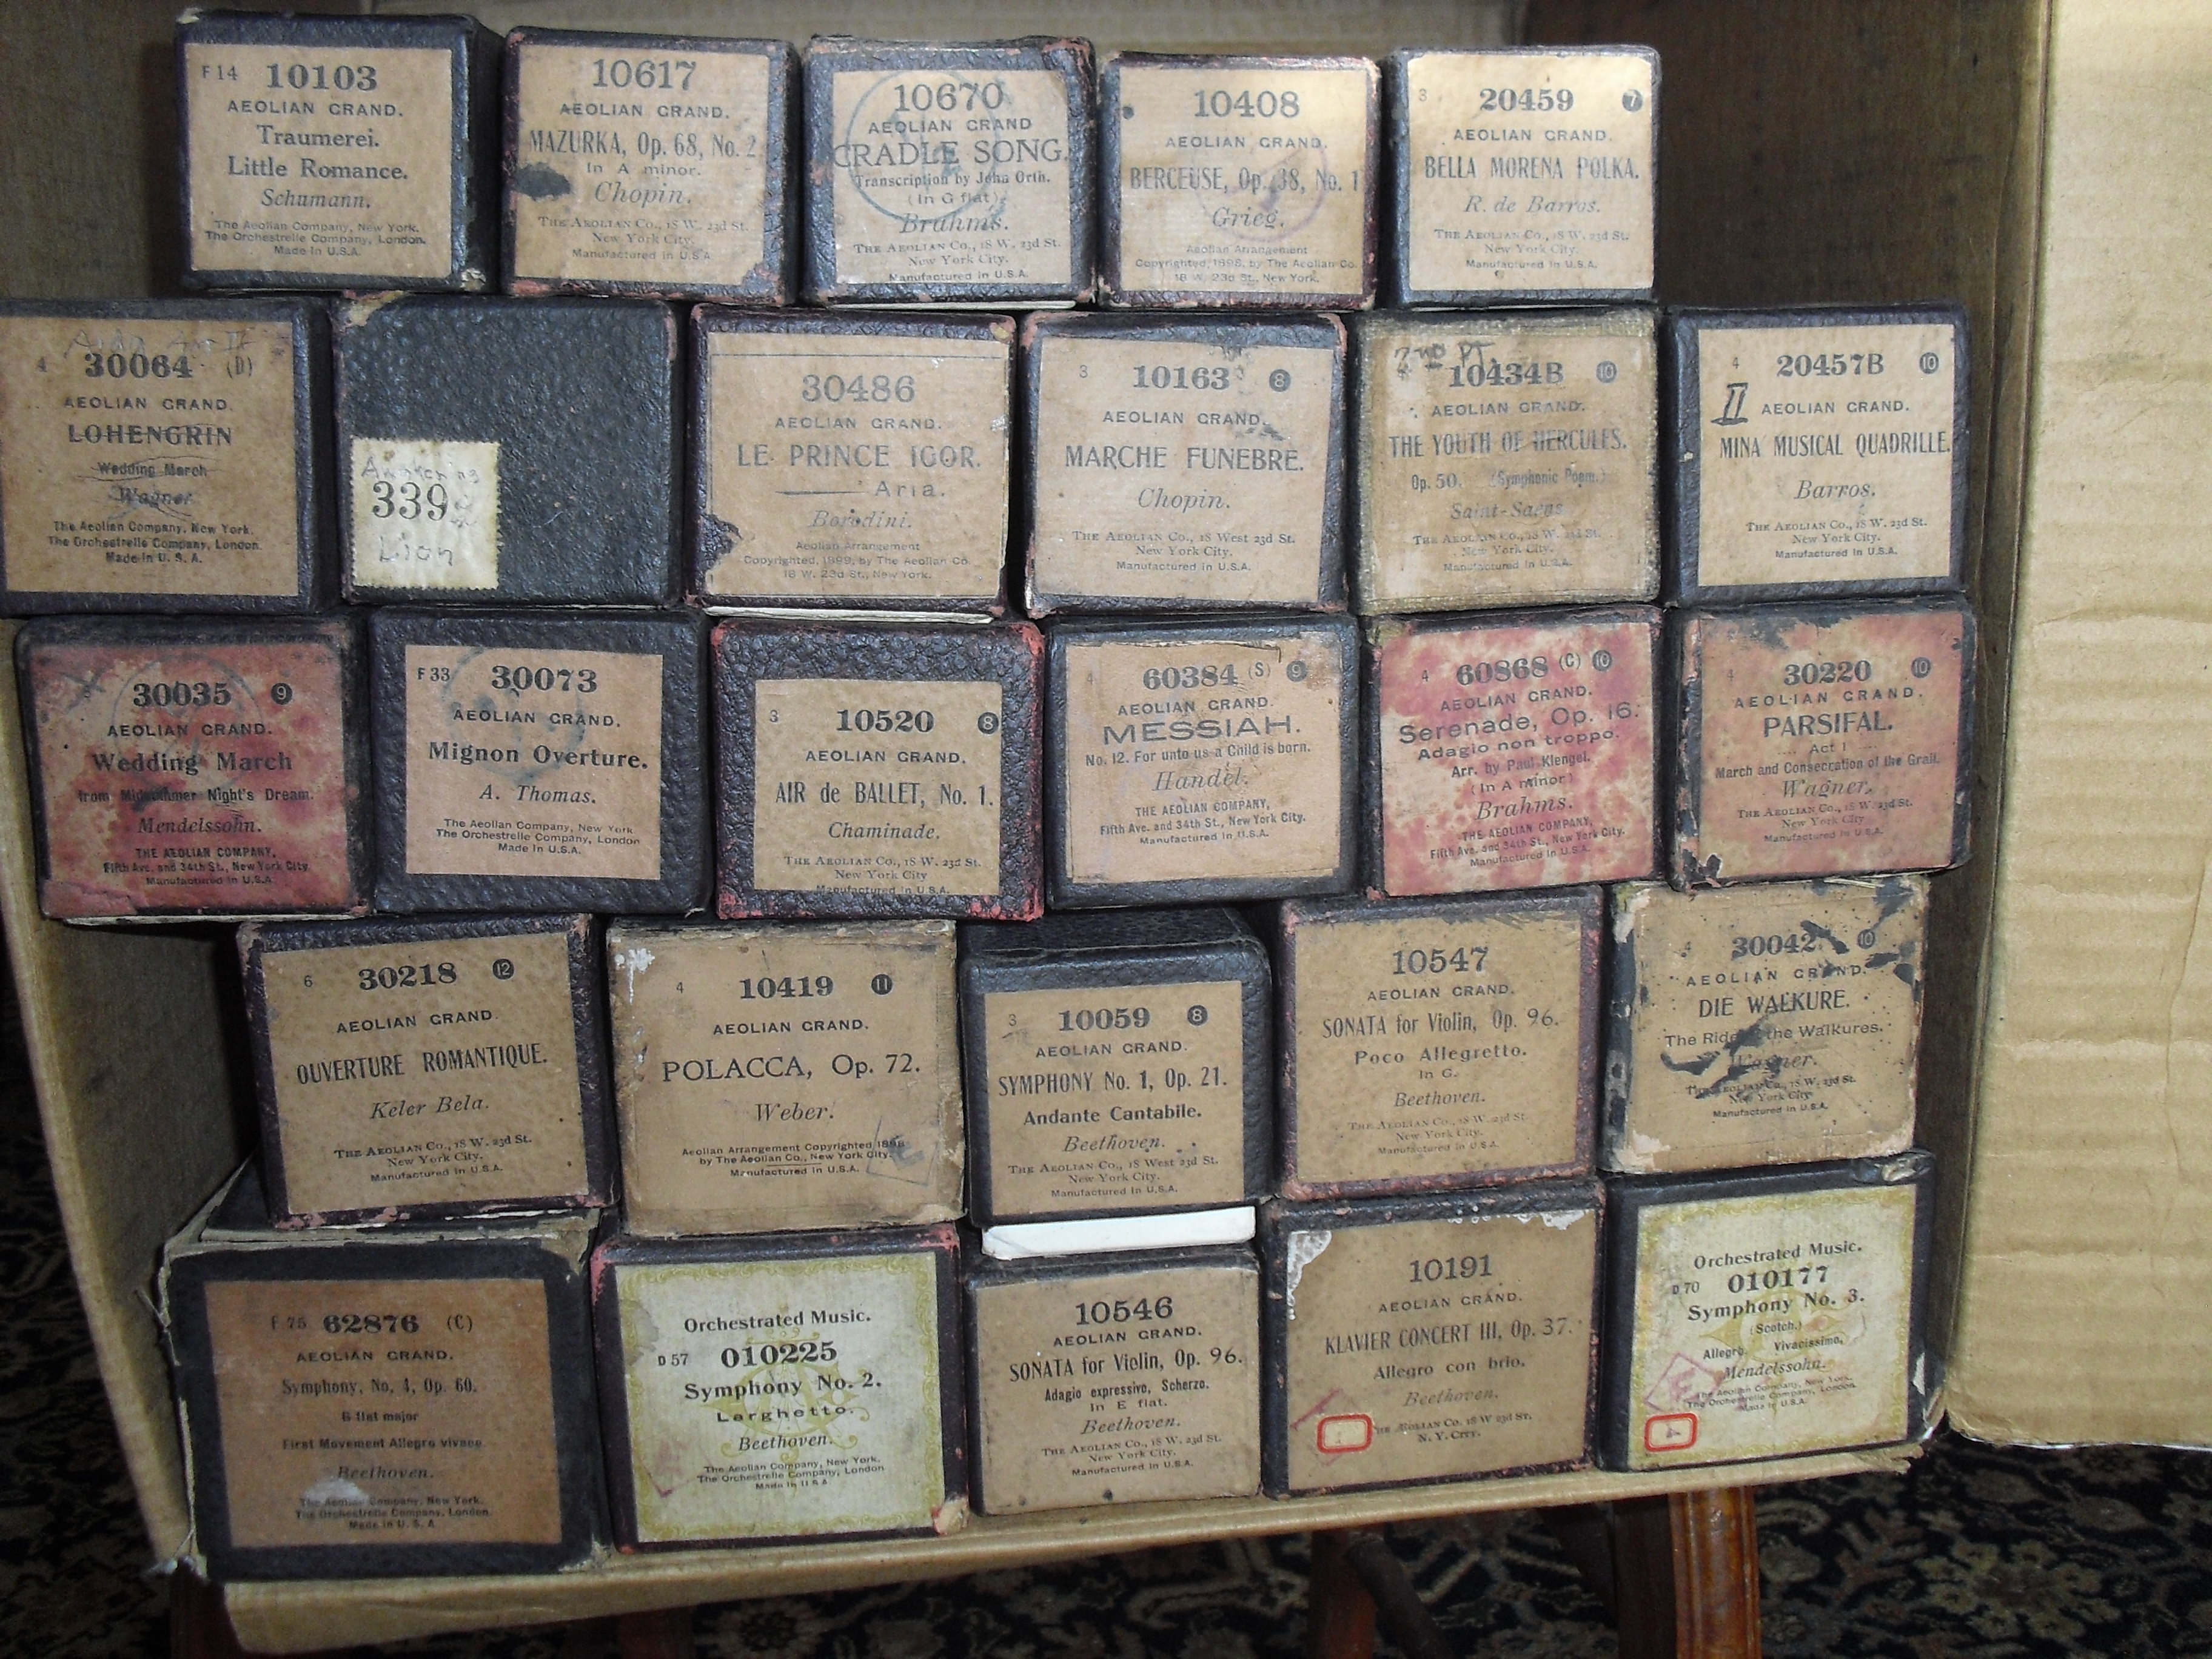 F 14 10103
AEOLIAN GRAND.
Traumerei.
Little Romance.
Schumann.
The Aeolian Company, New York.
The Orchestrelle Company, London.
Made in U.S.A.
10617
AEOLIAN GRAND.
MAZURKA, Op. 68, No. 2
In A minor.
Chopin.
THE AEOLIAN CO., 18 W. 23d St.
New York City.
Manufactured in U.S.A
10670
AEOLIAN GRAND
CRADLE SONG.
Transcription by John Orth.
(In G flat)
Brahms.
THE AEOLIAN CO., 18 W. 23d St.
New York City.
Manufactured in U.S.A.
10408
AEOLIAN GRAND.
BERCEUSE, Op. 38, No. 1
Grieg.
Aeolian Arrangement
Copyrighted, 1898, by The Aeolian Co.
18 W. 23d St., New York.
3 20459 7
AEOLIAN GRAND.
BELLA MORENA POLKA.
R. de Barros.
THE AEOLIAN CO., 18 W. 23d St.
New York City.
Manufactured in U.S.A.
4 30064 (D)
AEOLIAN GRAND.
LOHENGRIN
Wedding March
Wagner
The Aeolian Company, New York.
The Orchestrelle Company, London.
Made in U. S. A.
Awakening
339
Lion
30486
AEOLIAN GRAND.
LE PRINCE IGOR.
Aria.
Borodini.
Aeolian Arrangement
Copyrighted, 1899, by The Aeolian Co.
18 W. 23d St., New York.
3 10163 8
AEOLIAN GRAND.
MARCHE FUNEBRE.
Chopin.
THE AEOLIAN CO., 18 West 23d St.
New York City.
Manufactured in U.S.A.
2ND PT.
10434B 10
AEOLIAN GRAND.
THE YOUTH OF HERCULES.
Op. 50. (Symphonic Poem.)
Saint-Saens
THE AEOLIAN CO., 18 W. 23d St.
New York City.
Manufactured in U.S.A.
4 20457B 10
II AEOLIAN GRAND.
MINA MUSICAL QUADRILLE.
Barros.
THE AEOLIAN CO., 18 W. 23d St.
New York City.
Manufactured in U.S.A.
30035 9
AEOLIAN GRAND.
Wedding March
from Midsummer Night's Dream.
Mendelssohn.
THE AEOLIAN COMPANY,
Fifth Ave. and 34th St., New York City.
Manufactured in U.S.A.
F 33 30073
AEOLIAN GRAND.
Mignon Overture.
A. Thomas.
The Aeolian Company, New York
The Orchestrelle Company, London
Made in U.S.A.
3 10520 8
AEOLIAN GRAND.
AIR de BALLET, No. 1.
Chaminade.
THE AEOLIAN CO., 18 W. 23d St.
New York City
Manufactured in U.S.A.
4 60384 (S) 9
AEOLIAN GRAND.
MESSIAH.
No. 12. For unto us a Child is born.
Handel.
THE AEOLIAN COMPANY,
Fifth Ave. and 34th St., New York City.
Manufactured in U.S.A.
4 60868 (C) 10
AEOLIAN GRAND.
Serenade, Op. 16.
Adagio non troppo.
Arr. by Paul Klengel.
(In A minor)
Brahms.
THE AEOLIAN COMPANY,
Fifth Ave. and 34th St., New York City.
Manufactured in U.S.A.
4 30220 10
AEOLIAN GRAND.
PARSIFAL.
Act I
March and Consecration of the Grail.
Wagner.
THE AEOLIAN CO., 18 W. 23d St.
New York City
Manufactured in U.S.A.
6 30218 12
AEOLIAN GRAND.
OUVERTURE ROMANTIQUE.
Keler Bela.
THE AEOLIAN CO., 18 W. 23d St.
New York City.
Manufactured in U.S.A.
4 10419 11
AEOLIAN GRAND.
POLACCA, Op. 72.
Weber.
Aeolian Arrangement Copyrighted
by The Aeolian Co., New York City.
Manufactured in U.S.A.
3 10059 8
AEOLIAN GRAND.
SYMPHONY No. 1, Op. 21.
Andante Cantabile.
Beethoven.
THE AEOLIAN CO., 18 West 23d St.
New York City.
Manufactured in U.S.A.
10547
AEOLIAN GRAND.
SONATA for Violin, Op. 96.
Poco Allegretto.
In G.
Beethoven.
THE AEOLIAN CO., 18 W. 23d St.
New York City.
Manufactured in U.S.A.
4 30042 10
AEOLIAN GRAND.
DIE WALKURE.
The Ride the Walkures.
Wagner.
THE AEOLIAN CO., 18 W. 23d St.
New York City
Manufactured in U.S.A.
F 75 62876 (C)
AEOLIAN GRAND.
Symphony, No. 4, Op. 60.
B flat major
First Movement Allegro vivace
Beethoven.
The Aeolian Company, New York.
The Orchestrelle Company, London.
Made in U. S. A
Orchestrated Music.
D 57 010225
Symphony No. 2.
Larghetto.
Beethoven.
The Aeolian Company, New York.
The Orchestrelle Company, London
Made in U.S.A
10546
AEOLIAN GRAND.
SONATA for Violin, Op. 96.
Adagio expressivo, Scherzo.
In E flat.
Beethoven.
THE AEOLIAN CO., 18 W. 23d St.
New York City.
Manufactured in U.S.A.
10191
AEOLIAN GRAND.
KLAVIER CONCERT III, Op. 37.
Allegro con brio.
Beethoven.
THE AEOLIAN CO. 18 W 23d ST.
N. Y. CITY.
Orchestrated Music.
D 70 010177
Symphony No. 3.
(Scotch.)
Allegro. Vivacissimo,
Mendelssohn.
The Aeolian Company, New York.
The Orchestrelle Company, London.
Made in U.S.A.